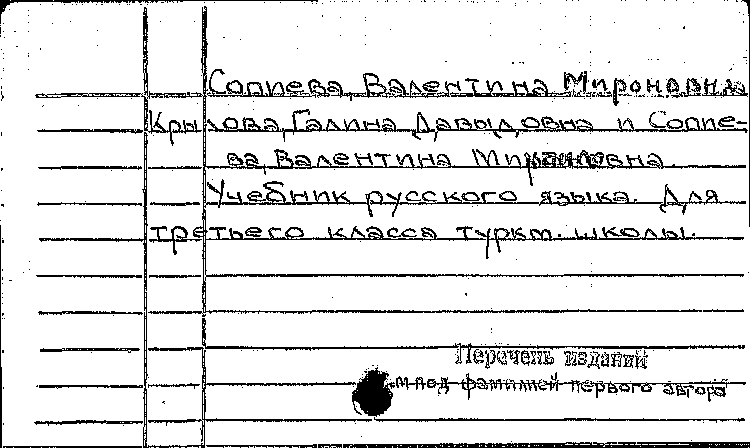 Сопиева, Валентина Мироновна
Крылова, Галина Давыдовна и Сопие-
ва, Валентина Мироновна.
Учебник русского языка. Для
третьего класса туркм. школы.
Перечень изданий
см под фамилией первого автора